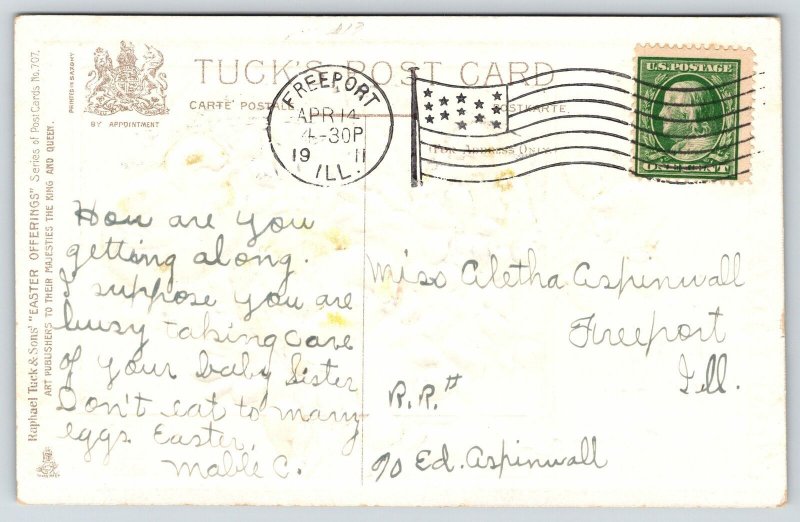 TUCK'S POST CARD
CARTE POSTALE
POSTKARTE.
(FOR ADDRESS ONLY)
PRINTED IN SAXONY
BY APPOINTMENT
Raphael Tuck & Sons' "EASTER OFFERINGS" Series of Post Cards No. 707.
ART PUBLISHERS TO THEIR MAJESTIES THE KING AND QUEEN.
FREEPORT
APR 14
4-30P
19 11
ILL.
U.S. POSTAGE
ONE CENT
How are you
getting along.
I suppose you are
busy taking care
of your baby sister
Don't eat to many
eggs Easter.
Mable C.
Miss Aletha Aspinwall
Freeport
Ill.
R.R.#
c/o Ed. Aspinwall